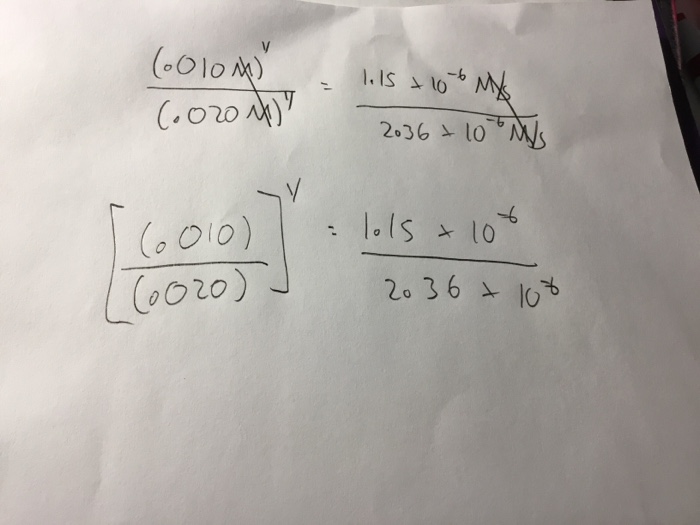 (.010 M)^y / (.020 M)^y = 1.15 x 10^-6 M/s / 2.36 x 10^-6 M/s
[(.010) / (.0020)]^y = 1.15 x 10^-6 / 2.36 x 10^-6